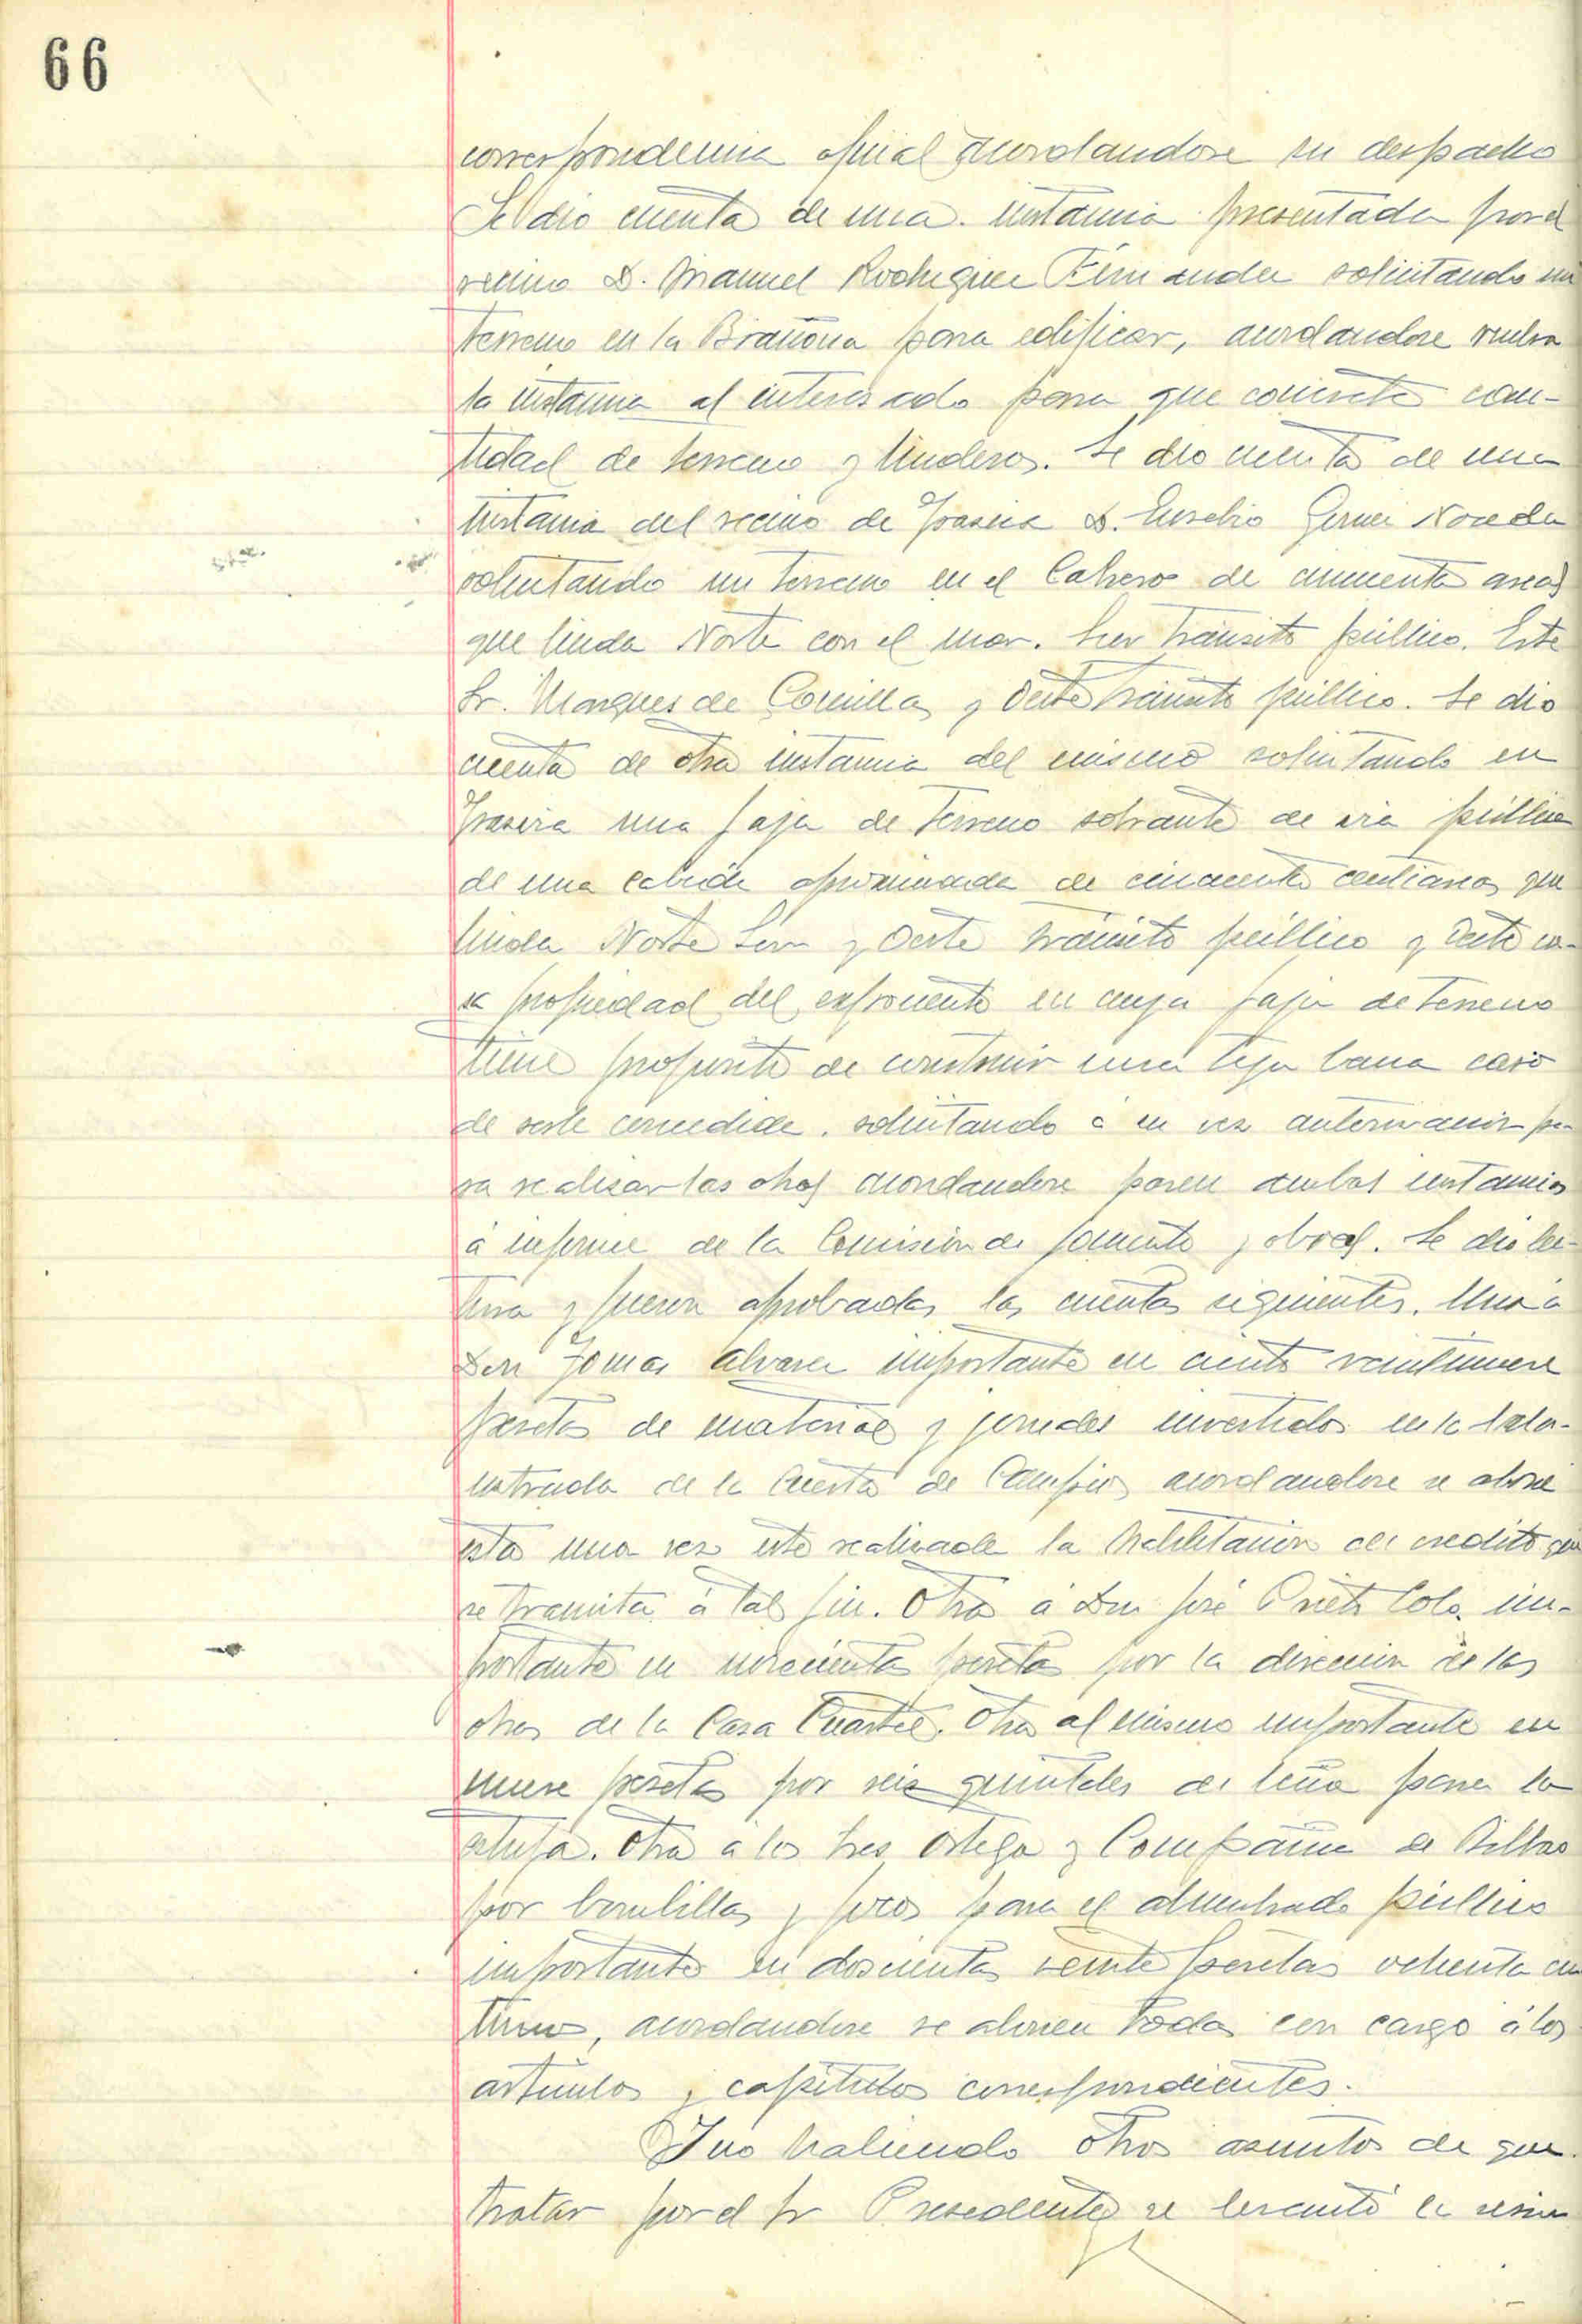 66
correspondencia oficial acordandose su despacho
Se dio cuenta de una instancia presentada por el
vecino D. Manuel Rodriguez Fernandez solicitando un
terreno en la Brañona para edificar, acordandose vuelva
la instancia al interesado para que concrete can-
tidad de terreno y linderos. Se dio cuenta de una
instancia del vecino de D. Eusebio
solicitando un terreno en el de cincuenta areas
que linda Norte con el mar. Sur transito público. Este
Sr. Marques de Comillas y Oeste transito público. Se dio
cuenta de otra instancia del mismo solicitando en
una faja de terreno sobrante de via pública
de una cabida aproximada de cincuenta centiareas que
linda Norte Sur y Oeste tránsito público y Este ca-
sa propiedad del exponente en cuya faja de terreno
tiene proposito de construir una teja bana caso
de serle concedida. solicitando á su vez autorizacion pa-
ra realizar las obras acordandose pasen ambas instancias
á informe de la Comision de fomento y obras. Se dio lec-
tura y fueron aprobadas las cuentas siguientes. Una á
Don Tomas Alvarez importante en ciento veintinueve
pesetas de material y jornales invertidos en la
de la Cuesta de Campios acordandose se abone
esta una vez esté realizada la habilitacion de credito que
se tramita á tal fin. Otra á Don José Prieto Cobo im-
portante en pesetas por la direccion de las
obras de la Casa Cuartel. Otra al mismo importante en
nueve pesetas por seis quintales de leña para la
estufa. Otra á los Sres Ortega y Compañia de Bilbao
por bombillas y focos para el alumbrado público
importante en doscientas veinte pesetas ochenta cen
timos, acordandose se abonen todas con cargo á los
artículos y capitulos correspondientes.
Y no habiendo otros asuntos de que
tratar por el Sr Presidente se levantó la sesion